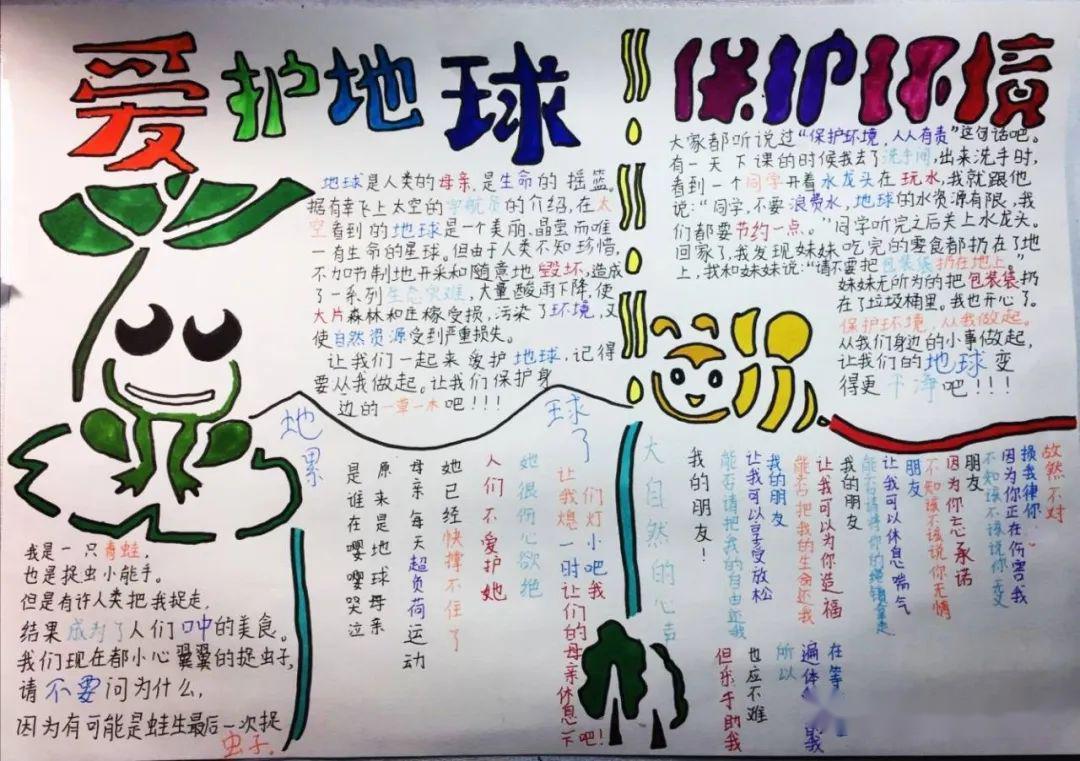 爱护地球
保护环境
地球是人类的母亲,是生命的摇篮。
据有幸飞上太空的宇航员的介绍,在太
空看到的地球是一个美丽、晶莹而唯
一有生命的星球。但由于人类不知珍惜,
不加节制地开采和随意地毁坏,造成
了一系列生态灾难,大量酸雨下降,使
大片森林和庄稼受损,污染了环境,又
使自然资源受到严重损失。
让我们一起来爱护地球,记得
要从我做起。让我们保护身
边的一草一木吧!!!
大家都听说过“保护环境,人人有责”这句话吧。
有一天下课的时候我去了洗手间,出来洗手时,
看到一个同学开着水龙头在玩水,我就跟他
说:“同学,不要浪费水,地球的水资源有限,我
们都要节约一点。”同学听完之后关上水龙头。
回家了,我发现妹妹吃完的零食都扔在了地
上,我和妹妹说:“请不要把包装袋扔在地上。”
妹妹无所为的把包装袋扔
在了垃圾桶里。我也开心了。
保护环境,从我做起。
从我们身边的小事做起,
让我们的地球变
得更干净吧!!!
我是一只青蛙,
也是捉虫小能手。
但是有许人类把我捉走,
结果成为了人们口中的美食。
我们现在都小心翼翼的捉虫子,
请不要问为什么,
因为有可能是蛙生最后一次捉
虫子.
地累
球了
是谁在嘤嘤哭泣
原来是地球母亲
母亲每天超负荷运动
她已经快撑不住了
人们不爱护她
她很伤心欲绝
让我熄一时让们的母亲休息一下吧!
们灯小吧我
大自然的心声
我的朋友!
能否请把我的自由还我
我的朋友
让我可以享受放松
能否把我的生命还我
让我可以为你造福
我的朋友
能否请将你的绳锁拿走
让我可以休息喘气
朋友
不知该不该说你无情
因为你忘承诺
朋友
不知该不该说你善变
因为你正在伤害我
损我律你
故然不对
但乐手助我
也应不难
所以
遍体
我
在等